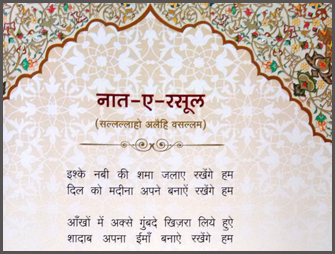 नात-ए-रसूल
(सल्लल्लाहो अलैहि वसल्लम)
इश्के नबी की शमा जलाए रखेंगे हम
दिल को मदीना अपने बनाऐं रखेंगे हम
आँखों में अक्से गुंबदे खिज़रा लिये हुऐ
शादाब अपना ईमाँ बनाऐ रखेंगे हम